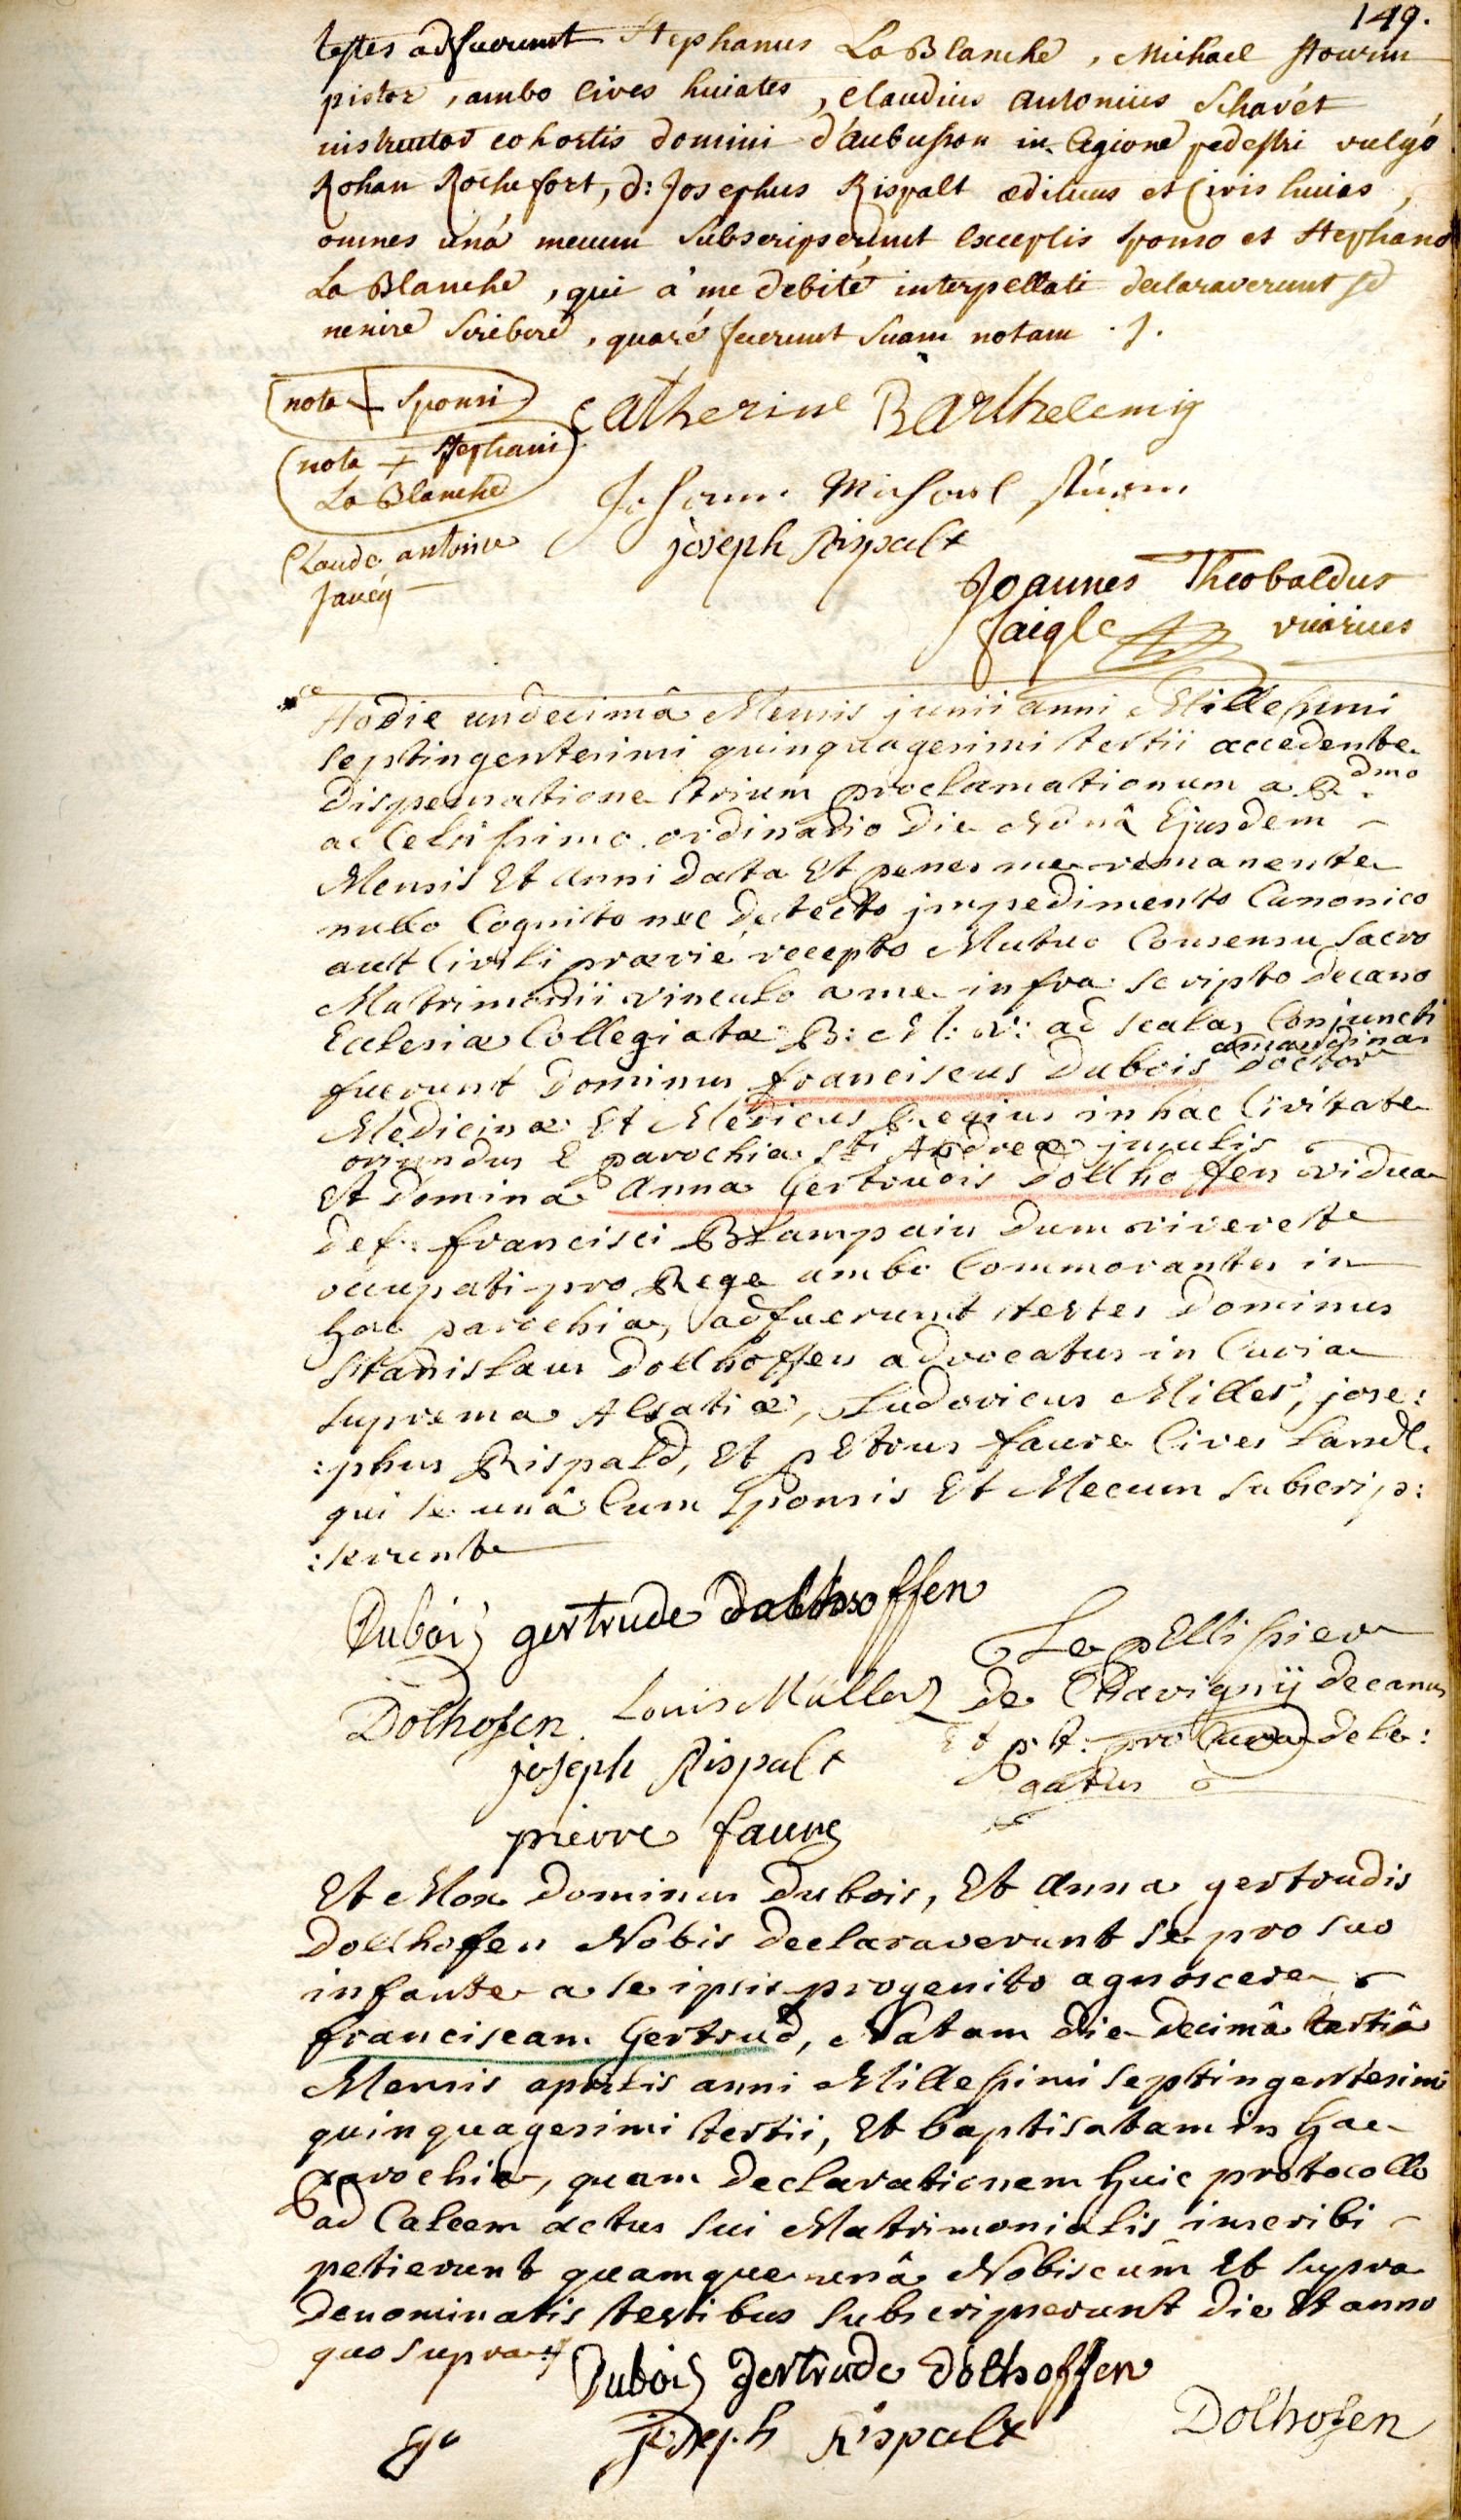 149.
testes adfuerunt Stephanus La Blanche, Michael Stourm
pistor, ambo cives huiates, Claudius Antonius Schavét
instructor cohortis domini d'aubusson in legione pedestri vulgó
Rohan Rochefort, d: Josephus Rispalt ædituus et Civis huias,
omnes uná mecum subscripserunt exceptis sponso et Stephano
La Blanche, qui á me debité interpellati declaraverunt se
nescire scribere, quaré fecerunt suam notam.
nota + Sponsi
Catherine Barthelemig
nota + Stephani
La Blanche
Johann Michael Sturm
Claude antoine
joseph Rispalt
Joannes Theobaldus
Jaigle vicarius
Hodie undecimâ Mensis junii anni Millesimi
septingentesimi quinquagesimi tertii accedente
dispensatione trium proclamationum a R.dmo
ac Celsissimo ordinario die Nonâ Ejusdem
Mensis Et Anni data Et penes me remanente
nullo Cognito nec detecto jmpedimento Canonico
aut Civili prævie recepto Mutuo Consensu Sacro
Matrimonii vinculo a me infra scripto decano
Ecclesiæ Collegiatæ B: M: V: ad scalas Conjuncti
fuerunt dominus franciscus Dubois doctor
Medicinæ Et Medicus Regius in hac Civitate
oriundus E parochia Sti Andreæ
Et domina Anna Gertrudis Dollhoffen vidua
def: francisci Blampain dum viveret
occupati pro Rege ambo Commorantes in
hac parochia, adfuerunt testes Dominus
Stanislaus Dollhoffen advocatus in Curia
suprema Alsatiæ, Ludovicus Miller, jose:
:phus Rispald, Et pEtrus faure Cives Landl.
qui se unâ Cum Sponsis Et Mecum subscrip:
:serunt
Dubois gertrude dolhoffen
Le pEllissier
Dolhofen Louis Müller de Chavignÿ decanus
joseph Rispalt Et p.t. pro Cura dele:
gatus
pierre faure
Et Mox dominus Dubois, Et Anna gertrudis
Dollhofen Nobis declaraverunt se pro suo
infante a se ipsis progenito agnoscere
franciscam Gertrud, Natam die decimâ tertiâ
Mensis aprilis anni Millesimi septingentesimi
quinquagesimi tertii, Et baptisatam in hac
parochia, quam declarationem huic protocollo
ad Calcem actus sui Matrimonialis inscribi
petierunt quamque unâ Nobiscum Et supra
denominatis testibus subscripserunt die Et anno
quo supra
Dubois gertrude dolhoffen
joseph Rispalt Dolhofen